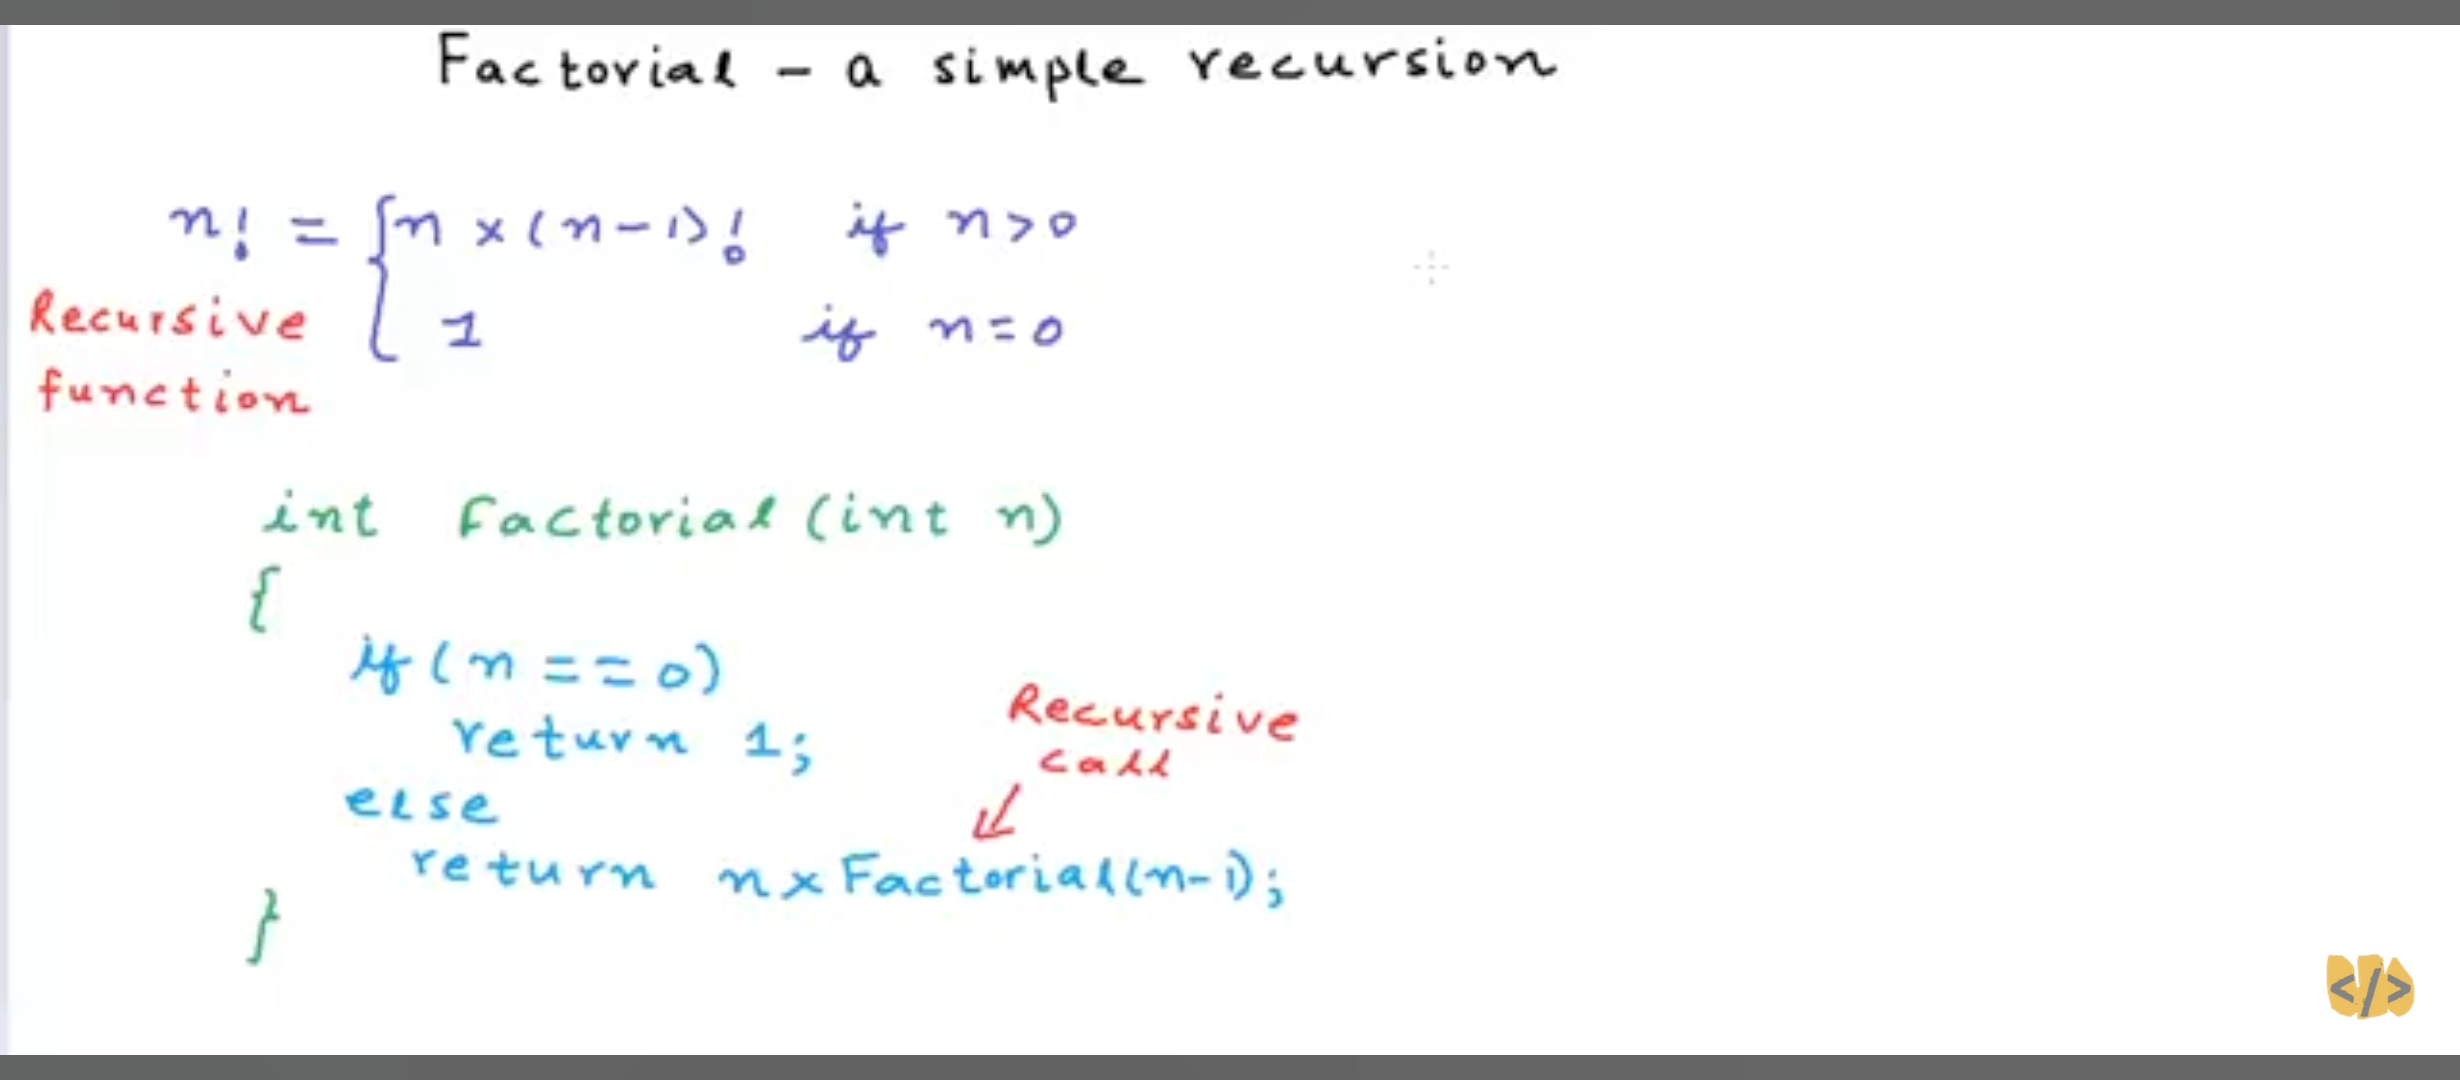 Factorial - a simple recursion
n! = { n × (n-1)! if n>0
1 if n=0
Recursive
function
int Factorial (int n)
{
if (n == 0)
return 1;
else
Recursive
call
return n × Factorial(n-1);
}
</>